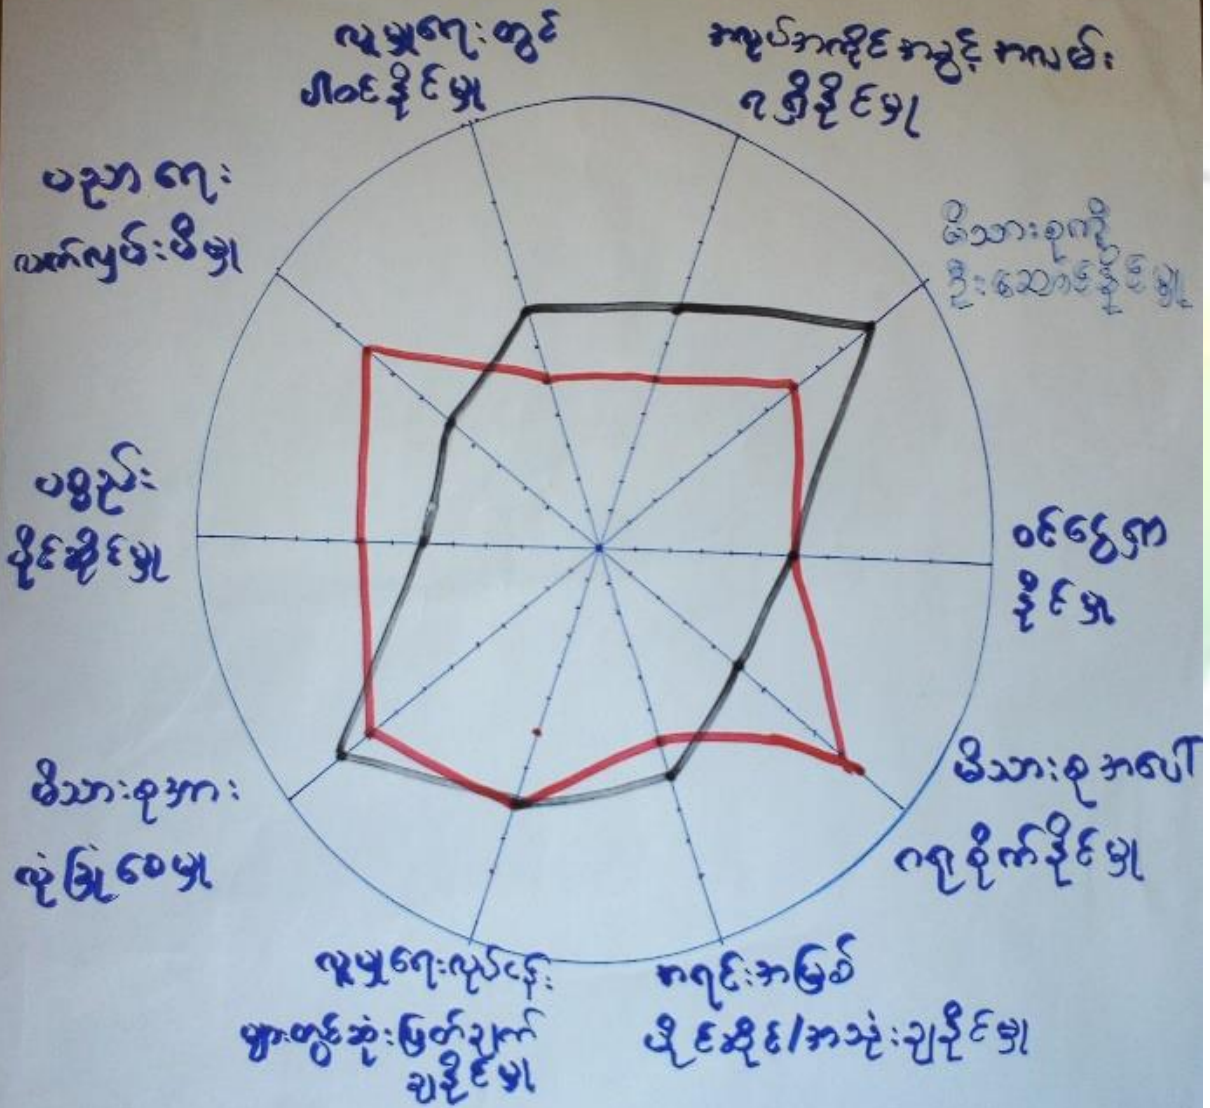 လူမှုရေးတွင်
ပါဝင်နိုင်မှု
အလုပ်အကိုင်အခွင့်အလမ်း
ရရှိနိုင်မှု
မိသားစုကို
ဦးဆောင်နိုင်မှု
ဝင်ငွေရှာ
နိုင်မှု
မိသားစုအပေါ်
ဂရုစိုက်နိုင်မှု
အရင်းအမြစ်
ပိုင်ဆိုင်/အသုံးချနိုင်မှု
လူမှုရေးလုပ်ငန်း
များတွင်ဆုံးဖြတ်ချက်
ချနိုင်မှု
မိသားစုအား
လုံခြုံစေမှု
ပစ္စည်း
ပိုင်ဆိုင်မှု
ပညာရေး
လက်လှမ်းမီမှု